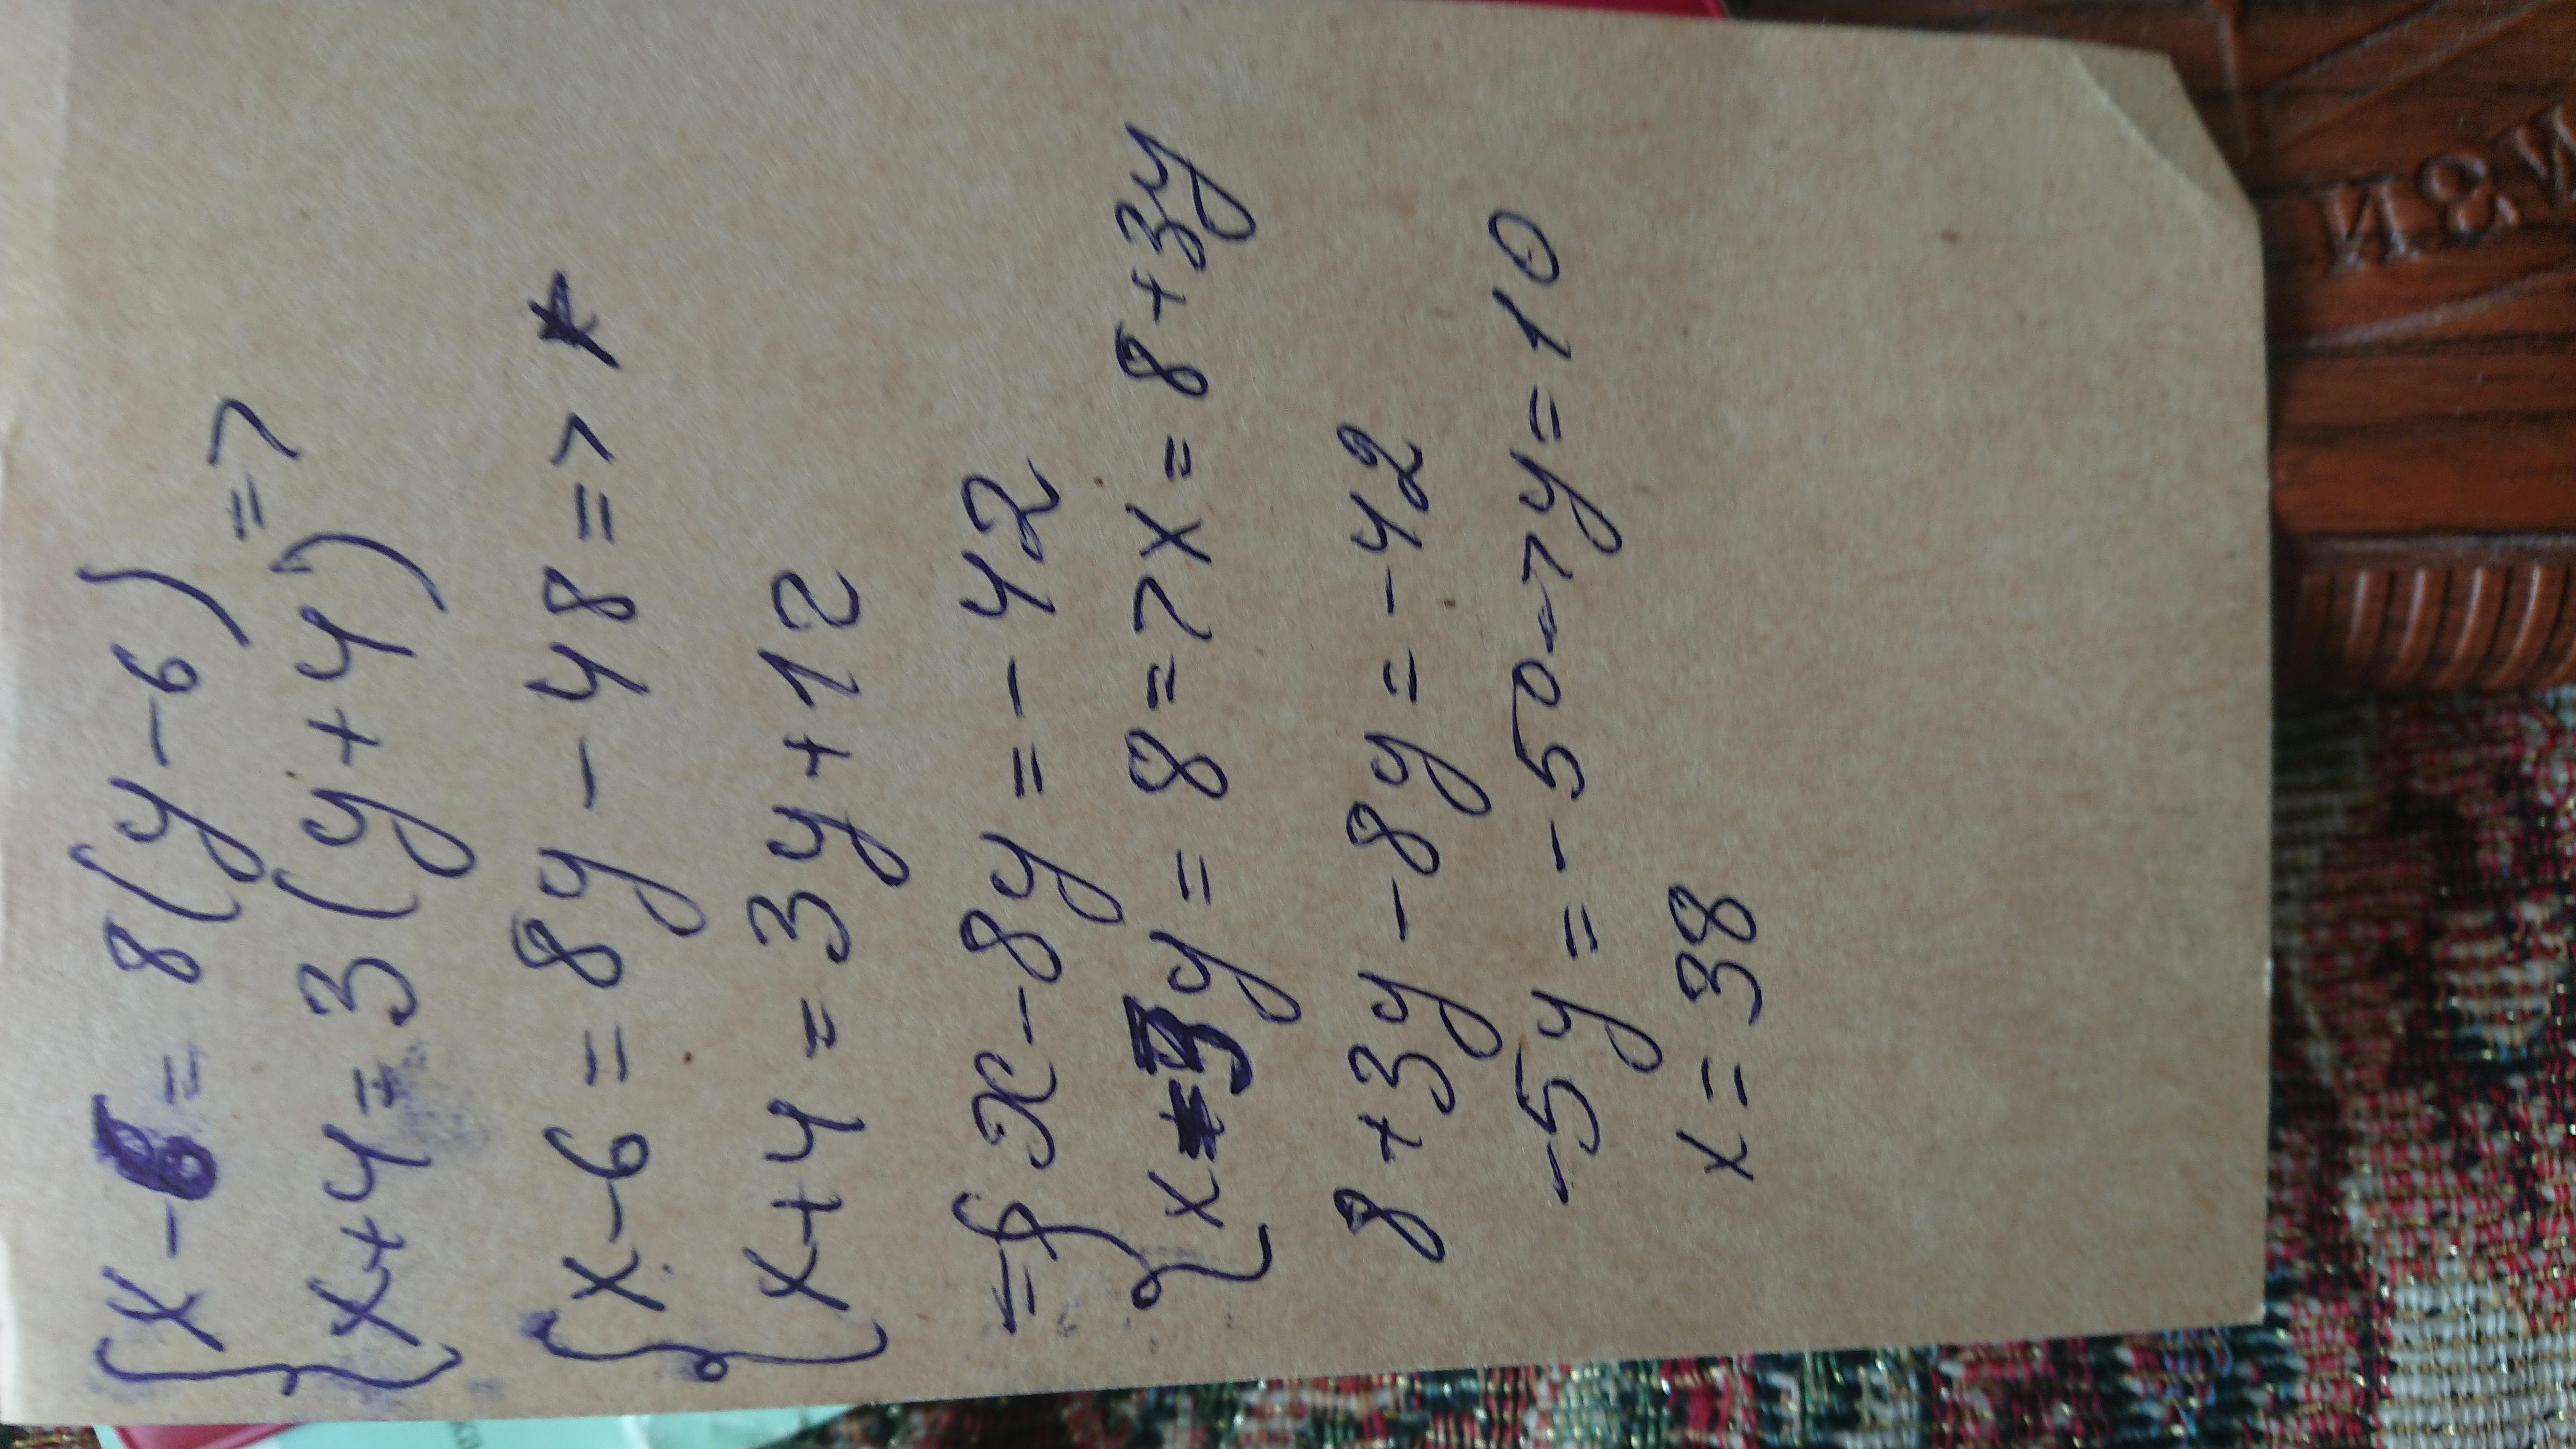 { x - 6 = 8 (y - 6) =>
{ x + 4 = 3 (y + 4)
{ x - 6 = 8y - 48 =>
{ x + 4 = 3y + 12
=> { x - 8y = - 42
{ x - 3y = 8 => x = 8 + 3y
8 + 3y - 8y = - 42
-5y = - 50 => y = 10
x = 38
И&И